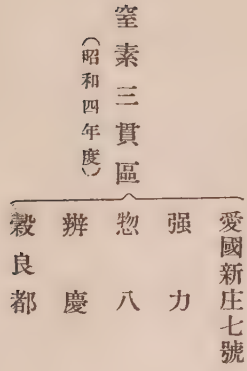 窒素三貫區
(昭和四年度)
愛國新庄七號
强力
惣八
辨慶
穀良都